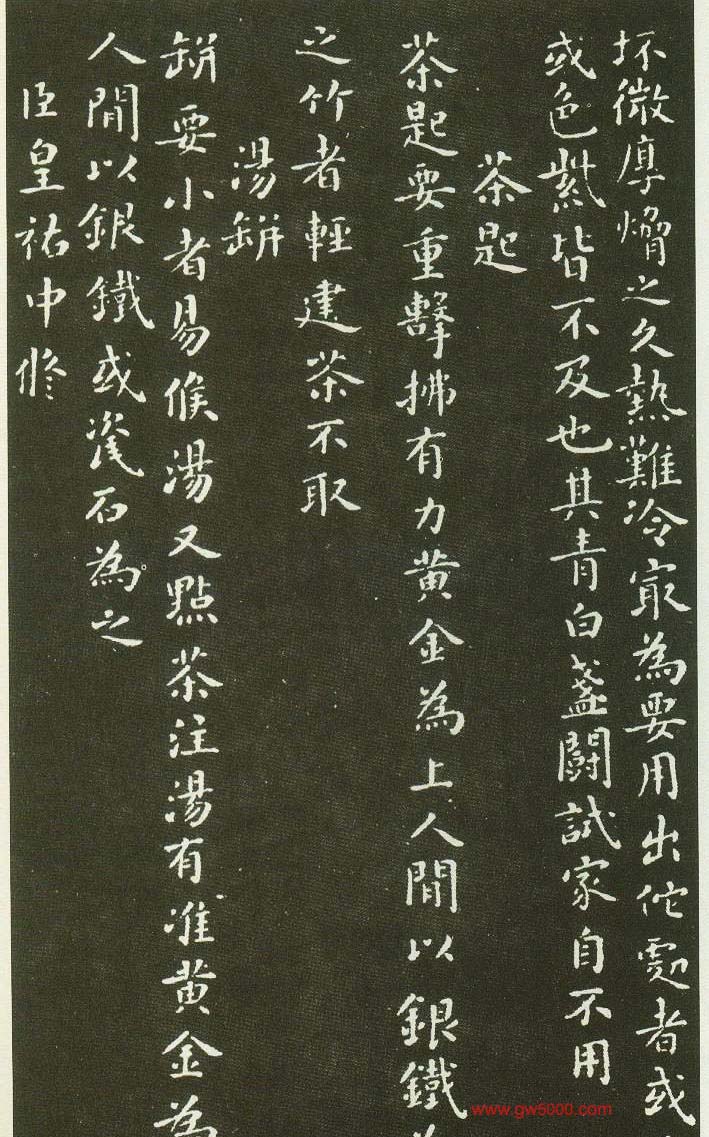 坏微厚熁之久熱難冷㝡為要用出佗處者或
或色紫皆不及也其青白盞鬪試家自不用
茶匙
茶匙要重擊拂有力黄金為上人間以銀鐵
之竹者輕建茶不取
湯缾
缾要小者易候湯又點茶注湯有准黄金為
人間以銀鐵或瓷石為之
臣皇祐中修
www.gw5000.com